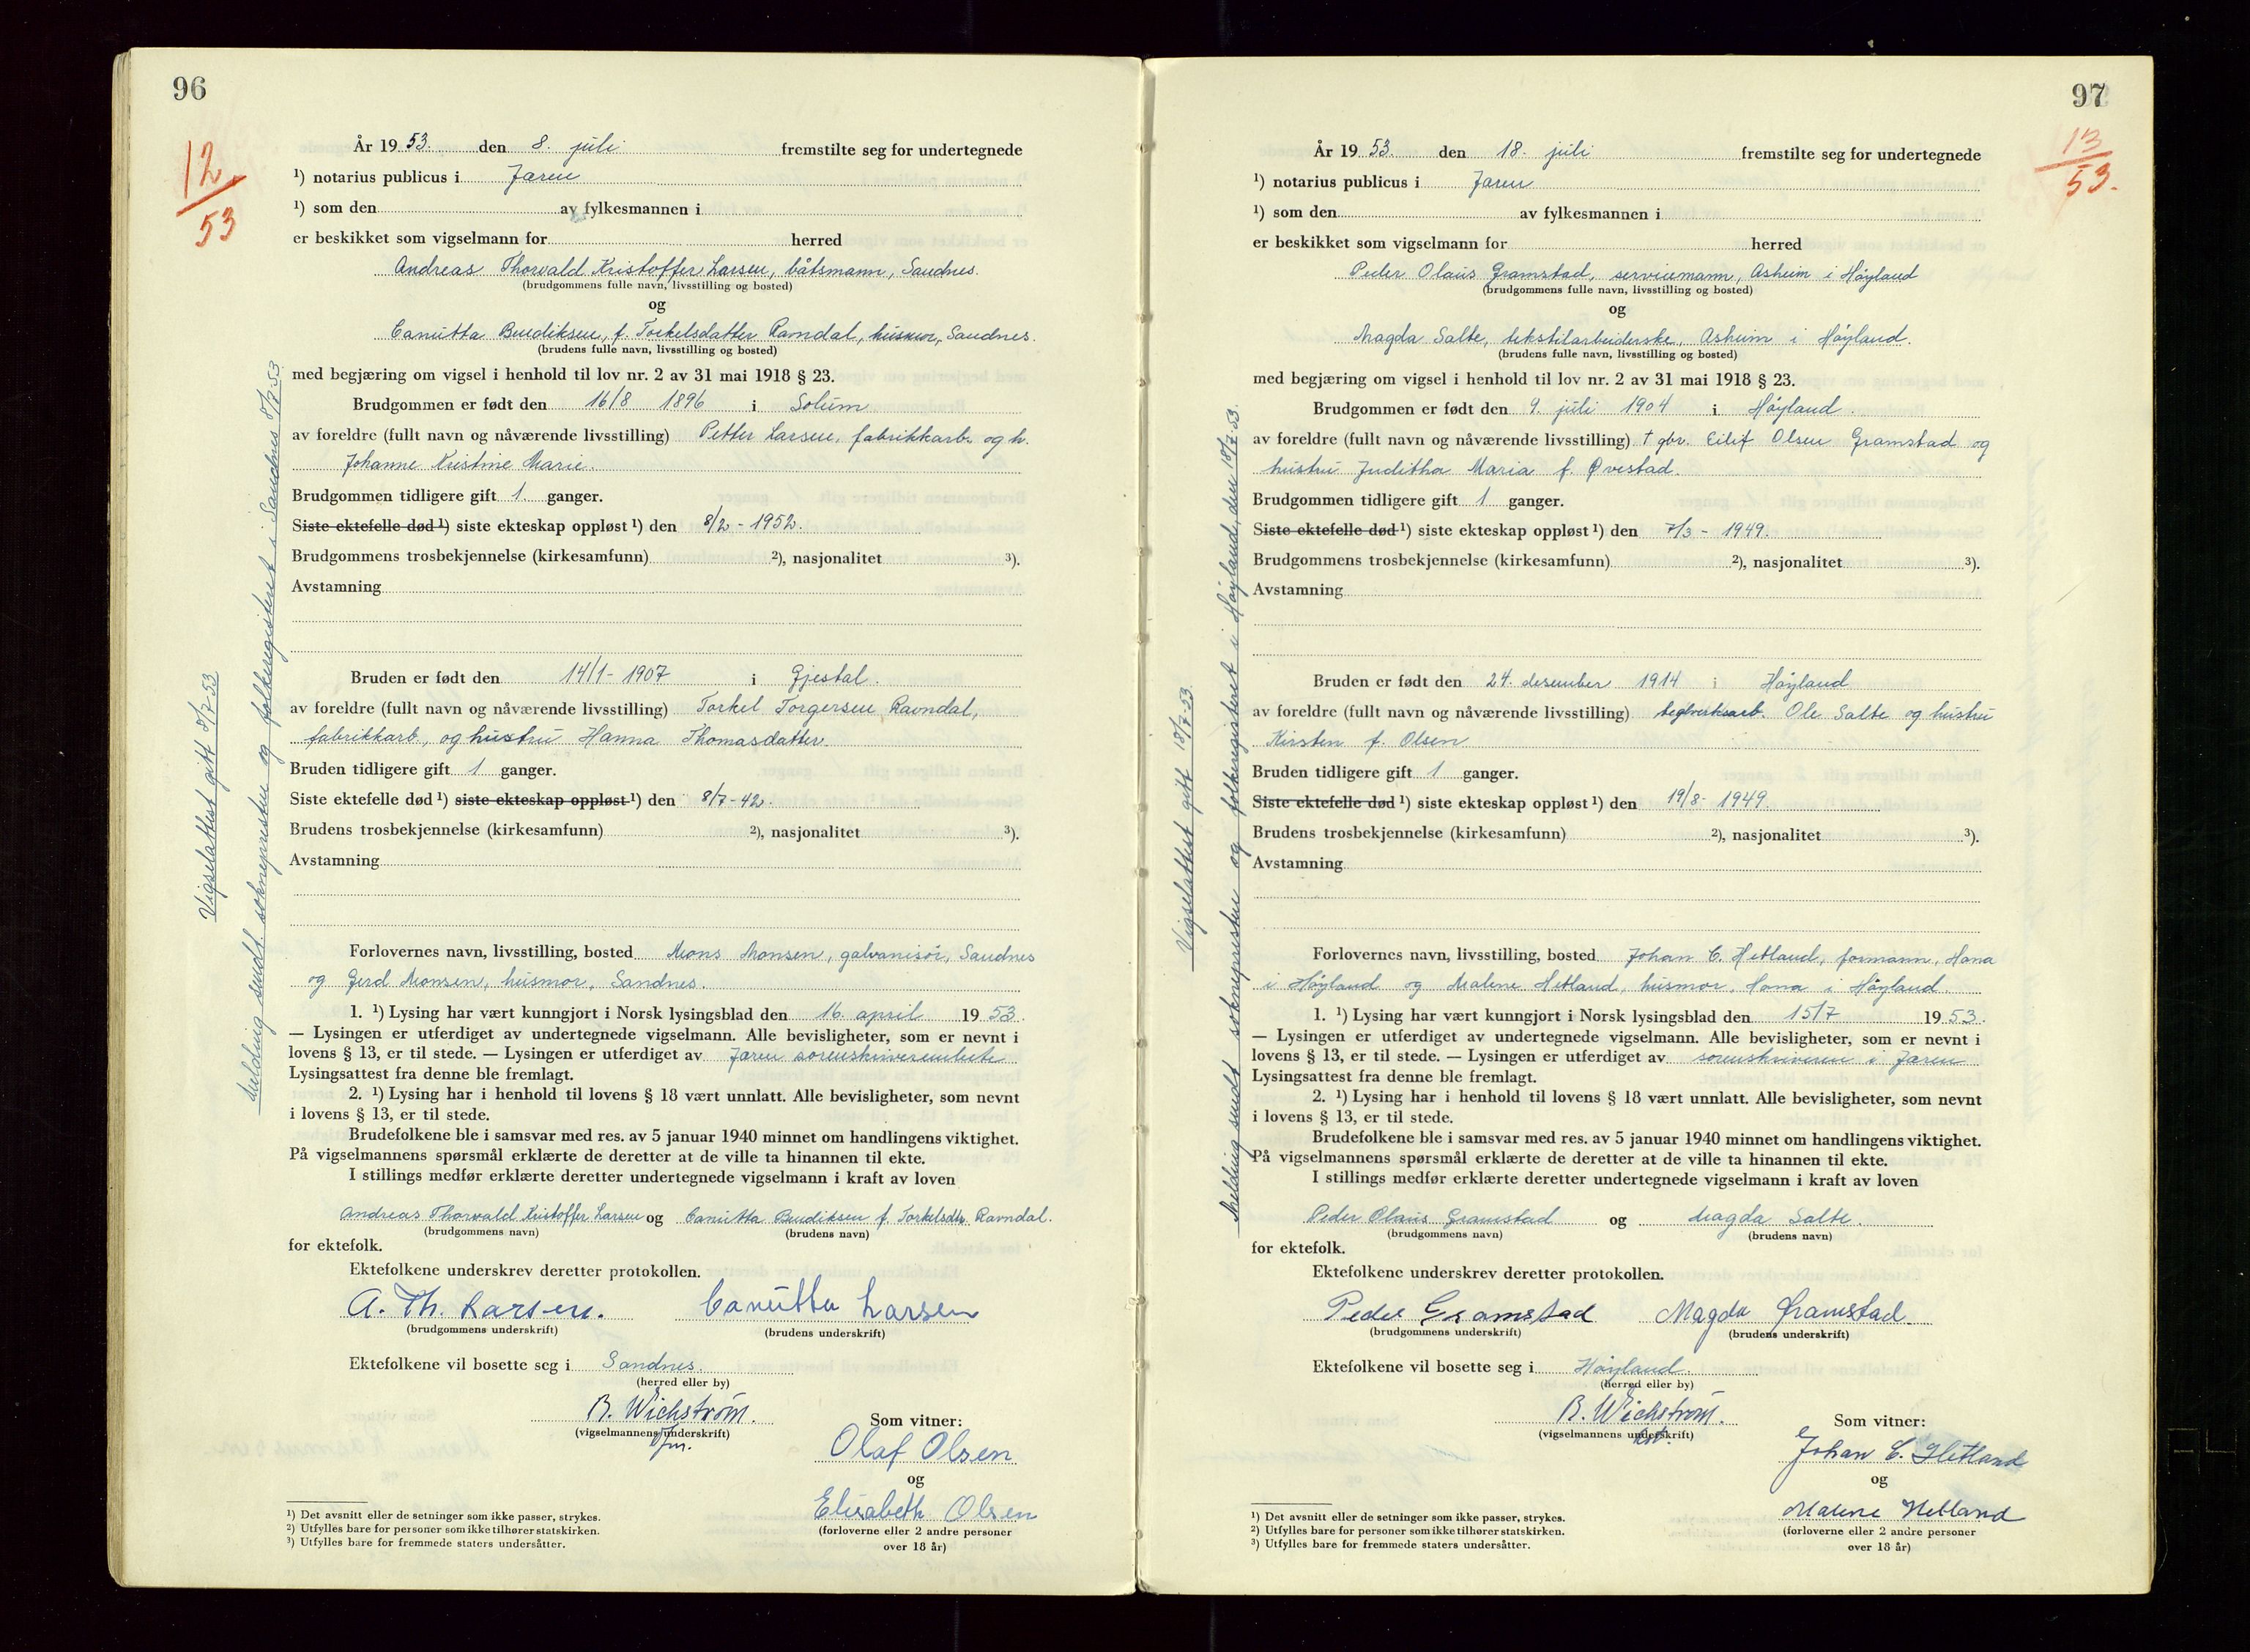 96
12/53
År 19 53. den 8. juli fremstilte seg for undertegnede
¹) notarius publicus i Jæren
¹) som den av fylkesmannen i
er beskikket som vigselmann for herred
Andreas Thorvald Kristoffer Larsen, båtsmann, Sandnes.
(brudgommens fulle navn, livsstilling og bosted)
og
Canutta Bendiksen, f. Torkelsdatter Ravndal, husmor, Sandnes.
(brudens fulle navn, livsstilling og bosted)
med begjæring om vigsel i henhold til lov nr. 2 av 31 mai 1918 § 23.
Brudgommen er født den 16/8 1896 i Solum
av foreldre (fullt navn og nåværende livsstilling) Petter Larsen, fabrikkarb. og h.
Johanne Kristine Marie.
Brudgommen tidligere gift 1. ganger.
Siste ektefelle død ¹) siste ekteskap oppløst ¹) den 8/2 - 1952.
Brudgommens trosbekjennelse (kirkesamfunn) ²), nasjonalitet ³).
Avstamning
Bruden er født den 14/1 - 1907 i Gjestal.
av foreldre (fullt navn og nåværende livsstilling) Torkel Torgersen Ravndal,
fabrikkarb., og hustru Hanna Thomasdatter.
Bruden tidligere gift 1 ganger.
Siste ektefelle død ¹) siste ekteskap oppløst ¹) den 8/7 - 42.
Brudens trosbekjennelse (kirkesamfunn) ²), nasjonalitet ³).
Avstamning
Forlovernes navn, livsstilling, bosted Mons Monsen, galvanisør, Sandnes
og Gerd Monsen, husmor, Sandnes.
1. ¹) Lysing har vært kunngjort i Norsk lysingsblad den 16. april 19 53.
— Lysingen er utferdiget av undertegnede vigselmann. Alle bevisligheter, som er nevnt i
lovens § 13, er til stede. — Lysingen er utferdiget av Jæren sorenskriverembete
Lysingsattest fra denne ble fremlagt.
2. ¹) Lysing har i henhold til lovens § 18 vært unnlatt. Alle bevisligheter, som nevnt
i lovens § 13, er til stede.
Brudefolkene ble i samsvar med res. av 5 januar 1940 minnet om handlingens viktighet.
På vigselmannens spørsmål erklærte de deretter at de ville ta hinannen til ekte.
I stillings medfør erklærte deretter undertegnede vigselmann i kraft av loven
Andreas Thorvald Kristoffer Larsen og Canutta Bendiksen f. Torkelsdtr. Ravndal.
(brudgommens navn) (brudens navn)
for ektefolk.
Ektefolkene underskrev deretter protokollen.
A. Th. Larsen. Canutta Larsen
(brudgommens underskrift) (brudens underskrift)
Ektefolkene vil bosette seg i Sandnes.
(herred eller by)
B. Wichstrøm.
(vigselmannens underskrift)
Som vitner:
Olaf Olsen
og
Elisabeth Olsen
(forloverne eller 2 andre personer
over 18 år)
¹) Det avsnitt eller de setninger som ikke passer, strykes.
²) Utfylles bare for personer som ikke tilhører statskirken.
³) Utfylles bare for fremmede staters undersåtter.
Vigselattest gitt 8/7-53
Melding sendt sokneprest­en og folkeregisteret i Sandnes 8/7-53
97
13/53.
År 19 53. den 18. juli fremstilte seg for undertegnede
¹) notarius publicus i Jæren
¹) som den av fylkesmannen i
er beskikket som vigselmann for herred
Peder Olaus Gramstad, servicemann, Asheim i Høyland
(brudgommens fulle navn, livsstilling og bosted)
og
Magda Salte, tekstilarbeiderske, Asheim i Høyland.
(brudens fulle navn, livsstilling og bosted)
med begjæring om vigsel i henhold til lov nr. 2 av 31 mai 1918 § 23.
Brudgommen er født den 9. juli 1904 i Høyland.
av foreldre (fullt navn og nåværende livsstilling) † gbr. Eilif Olsen Gramstad og
hustru Juditha Maria f. Øvestad.
Brudgommen tidligere gift 1 ganger.
Siste ektefelle død ¹) siste ekteskap oppløst ¹) den 7/3 - 1949.
Brudgommens trosbekjennelse (kirkesamfunn) ²), nasjonalitet ³).
Avstamning
Bruden er født den 24. desember 1914 i Høyland
av foreldre (fullt navn og nåværende livsstilling) teglverksarb. Ole Salte og hustru
Kirsten f. Olsen
Bruden tidligere gift 1 ganger.
Siste ektefelle død ¹) siste ekteskap oppløst ¹) den 19/8 - 1949.
Brudens trosbekjennelse (kirkesamfunn) ²), nasjonalitet ³).
Avstamning
Forlovernes navn, livsstilling, bosted Johan C. Hetland, formann, Hana
i Høyland og Malene Hetland, husmor, Hana i Høyland.
1. ¹) Lysing har vært kunngjort i Norsk lysingsblad den 15/7 19 53.
— Lysingen er utferdiget av undertegnede vigselmann. Alle bevisligheter, som er nevnt i
lovens § 13, er til stede. — Lysingen er utferdiget av sorenskriveren i Jæren
Lysingsattest fra denne ble fremlagt.
2. ¹) Lysing har i henhold til lovens § 18 vært unnlatt. Alle bevisligheter, som nevnt
i lovens § 13, er til stede.
Brudefolkene ble i samsvar med res. av 5 januar 1940 minnet om handlingens viktighet.
På vigselmannens spørsmål erklærte de deretter at de ville ta hinannen til ekte.
I stillings medfør erklærte deretter undertegnede vigselmann i kraft av loven
Peder Olaus Gramstad og Magda Salte.
(brudgommens navn) (brudens navn)
for ektefolk.
Ektefolkene underskrev deretter protokollen.
Peder Gramstad Magda Gramstad
(brudgommens underskrift) (brudens underskrift)
Ektefolkene vil bosette seg i Høyland.
(herred eller by)
B. Wichstrøm.
(vigselmannens underskrift)
Som vitner:
Johan C. Hetland
og
Malene Hetland
(forloverne eller 2 andre personer
over 18 år)
¹) Det avsnitt eller de setninger som ikke passer, strykes.
²) Utfylles bare for personer som ikke tilhører statskirken.
³) Utfylles bare for fremmede staters undersåtter.
Vigselattest gitt 18/7-53
Melding sendt soknepresten og folkeregisteret i Høyland, den 18/7-53.